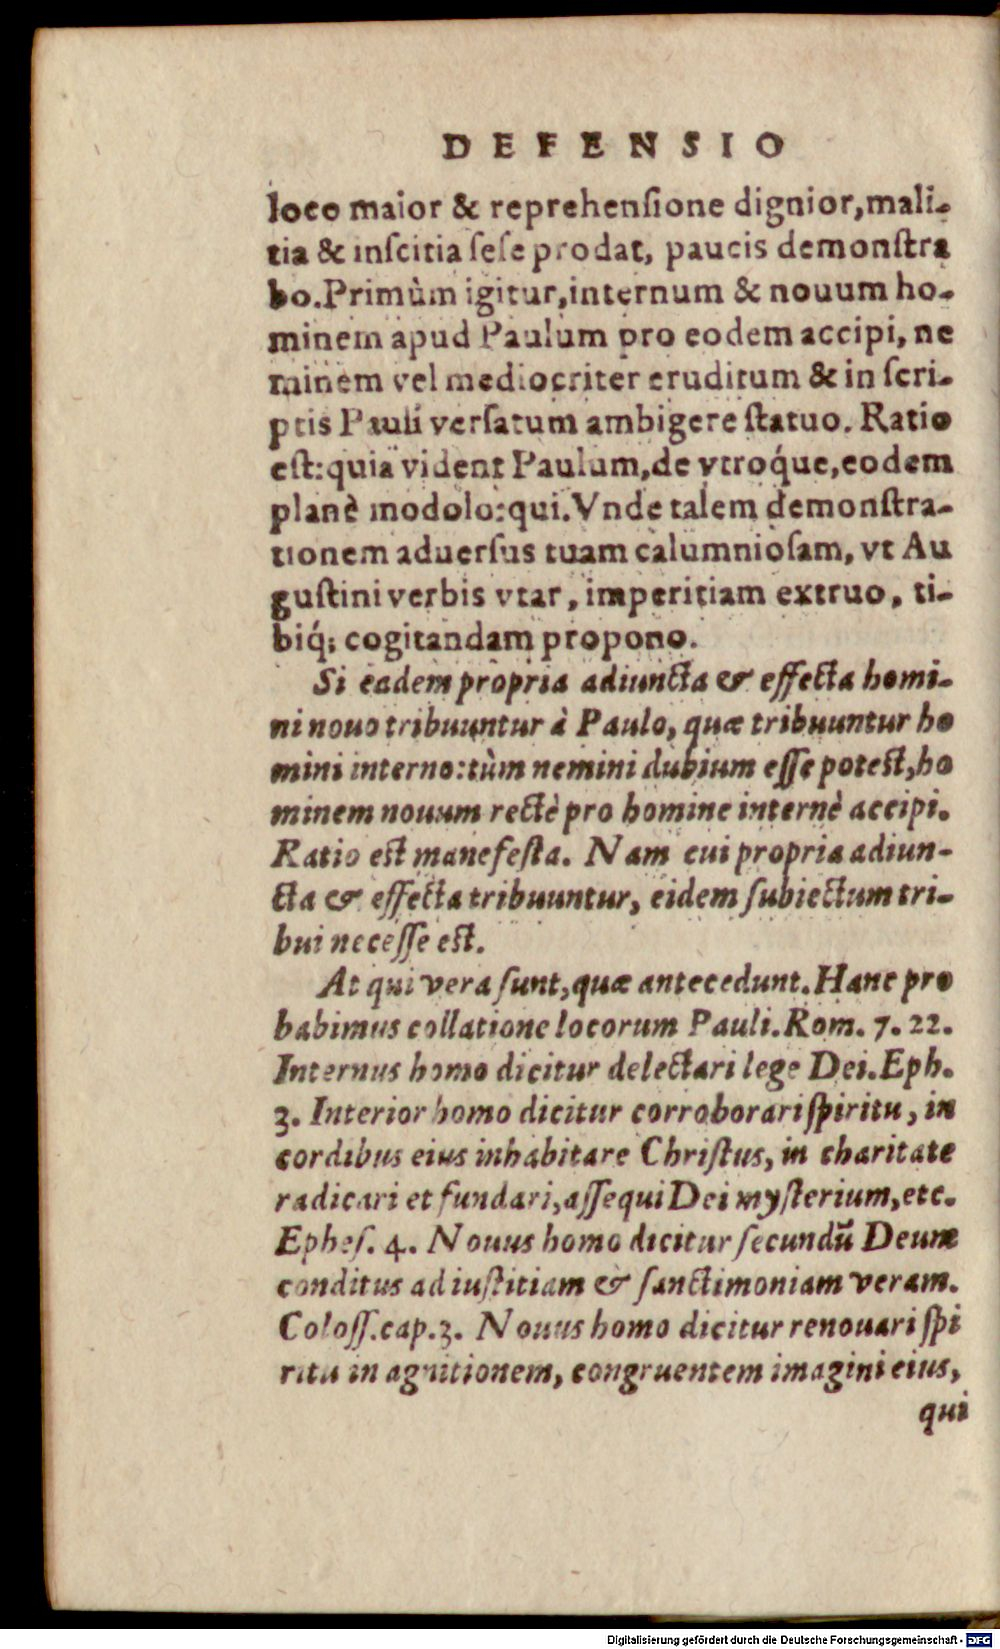 DEFENSIO
loco maior & reprehenſione dignior, mali-
tia & inſcitia ſeſe prodat, paucis demonſtra
bo. Primùm igitur, internum & nouum ho-
minem apud Paulum pro eodem accipi, ne
minem vel mediocriter eruditum & in ſcri-
ptis Pauli verſatum ambigere ſtatuo. Ratio
eſt: quia vident Paulum, de vtroq́ue, eodem
planè modo lo: qui. Vnde talem demonſtra-
tionem aduerſus tuam calumnioſam, vt Au
guſtini verbis vtar, imperitiam extruo, ti-
biq́; cogitandam propono.
Si eadem propria adiuncta & effecta homi-
ni nouo tribuuntur à Paulo, quæ tribuuntur ho
mini interno: tùm nemini dubium eſſe poteſt, ho
minem nouum rectè pro homine internè accipi.
Ratio eſt manefeſta. Nam cui propria adiun-
cta & effecta tribuuntur, eidem ſubiectum tri-
bui neceſſe eſt.
At qui vera ſunt, quæ antecedunt. Hanc pro
babimus collatione locorum Pauli. Rom. 7. 22.
Internus homo dicitur delectari lege Dei. Eph.
3. Interior homo dicitur corroborari ſpiritu, in
cordibus eius inhabitare Chriſtus, in charitate
radicari et fundari, aſſequi Dei myſterium, etc.
Epheſ. 4. Nouus homo dicitur ſecundũ Deum
conditus ad iuſtitiam & ſanctimoniam veram.
Coloſſ. cap. 3. Nouus homo dicitur renouari ſpi
ritu in agnitionem, congruentem imagini eius,
qui
Digitalisierung gefördert durch die Deutsche Forschungsgemeinschaft - DFG